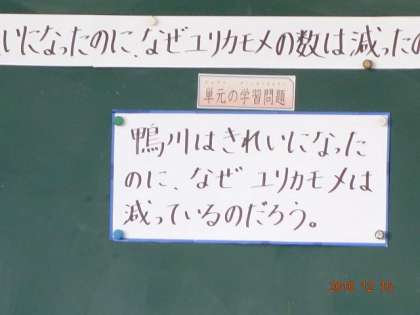 いになったのに、なぜユリカモメの数は減ったの
単元の学習問題
鴨川はきれいになった
のに、なぜユリカモメは
減っているのだろう。